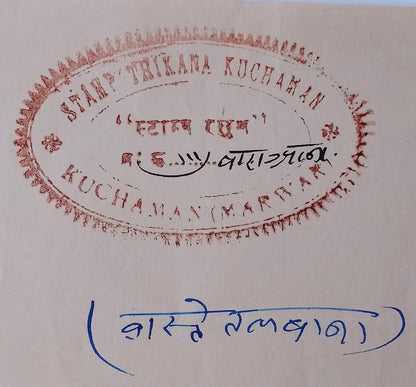 STAMP THIKANA KUCHAMAN
"स्टाम्प रसुम"
ब: क़ ...|||)
KUCHAMAN (MARWAR)
(वास्ते तलबाना)